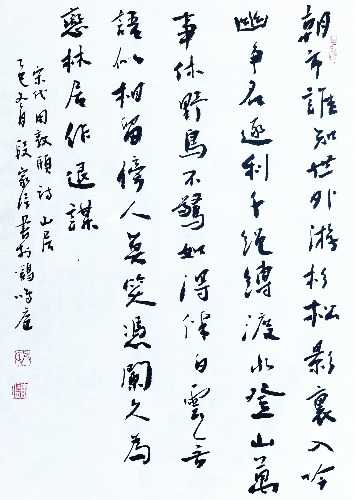 朝市誰知世外游杉松影裏入吟
幽争名逐利千绳縛渡水登山萬
事休野鳥不驚如得伴白雲无
語似相留傍人莫笑憑闌久為
戀林居作退謀
宋代周敦頤詩山居
乙巳月段家書於鶴鳴庵